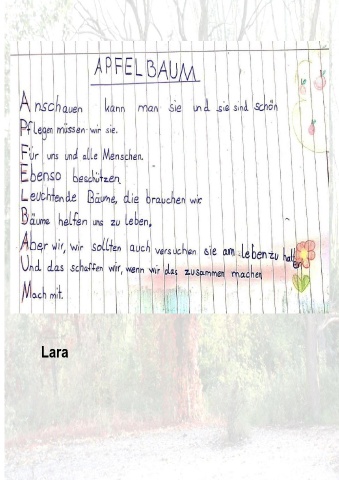 APFELBAUM
Anschauen kann man sie und sie sind schön
Pflegen müssen wir sie.
Für uns und alle Menschen.
Ebenso beschützen
Leuchtende Bäume, die brauchen wir
Bäume helfen uns zu leben.
Aber wir, wir sollten auch versuchen sie am Leben zu halten
Und das schaffen wir, wenn wir das zusammen machen
Mach mit.
Lara